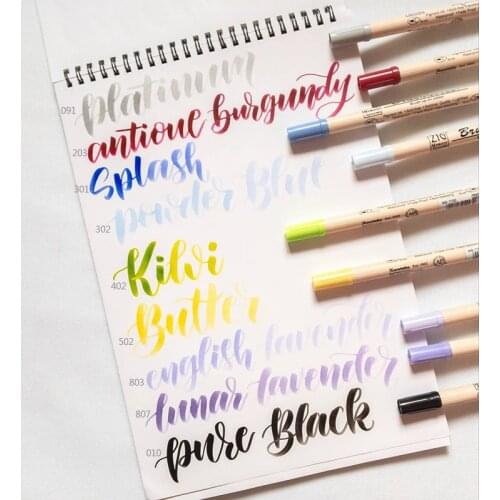 091 platinum
203 antique burgundy
301 Splash
302 powder Blue
402 Kiwi
502 Butter
803 english lavender
807 lunar lavender
010 pure Black
ZIG